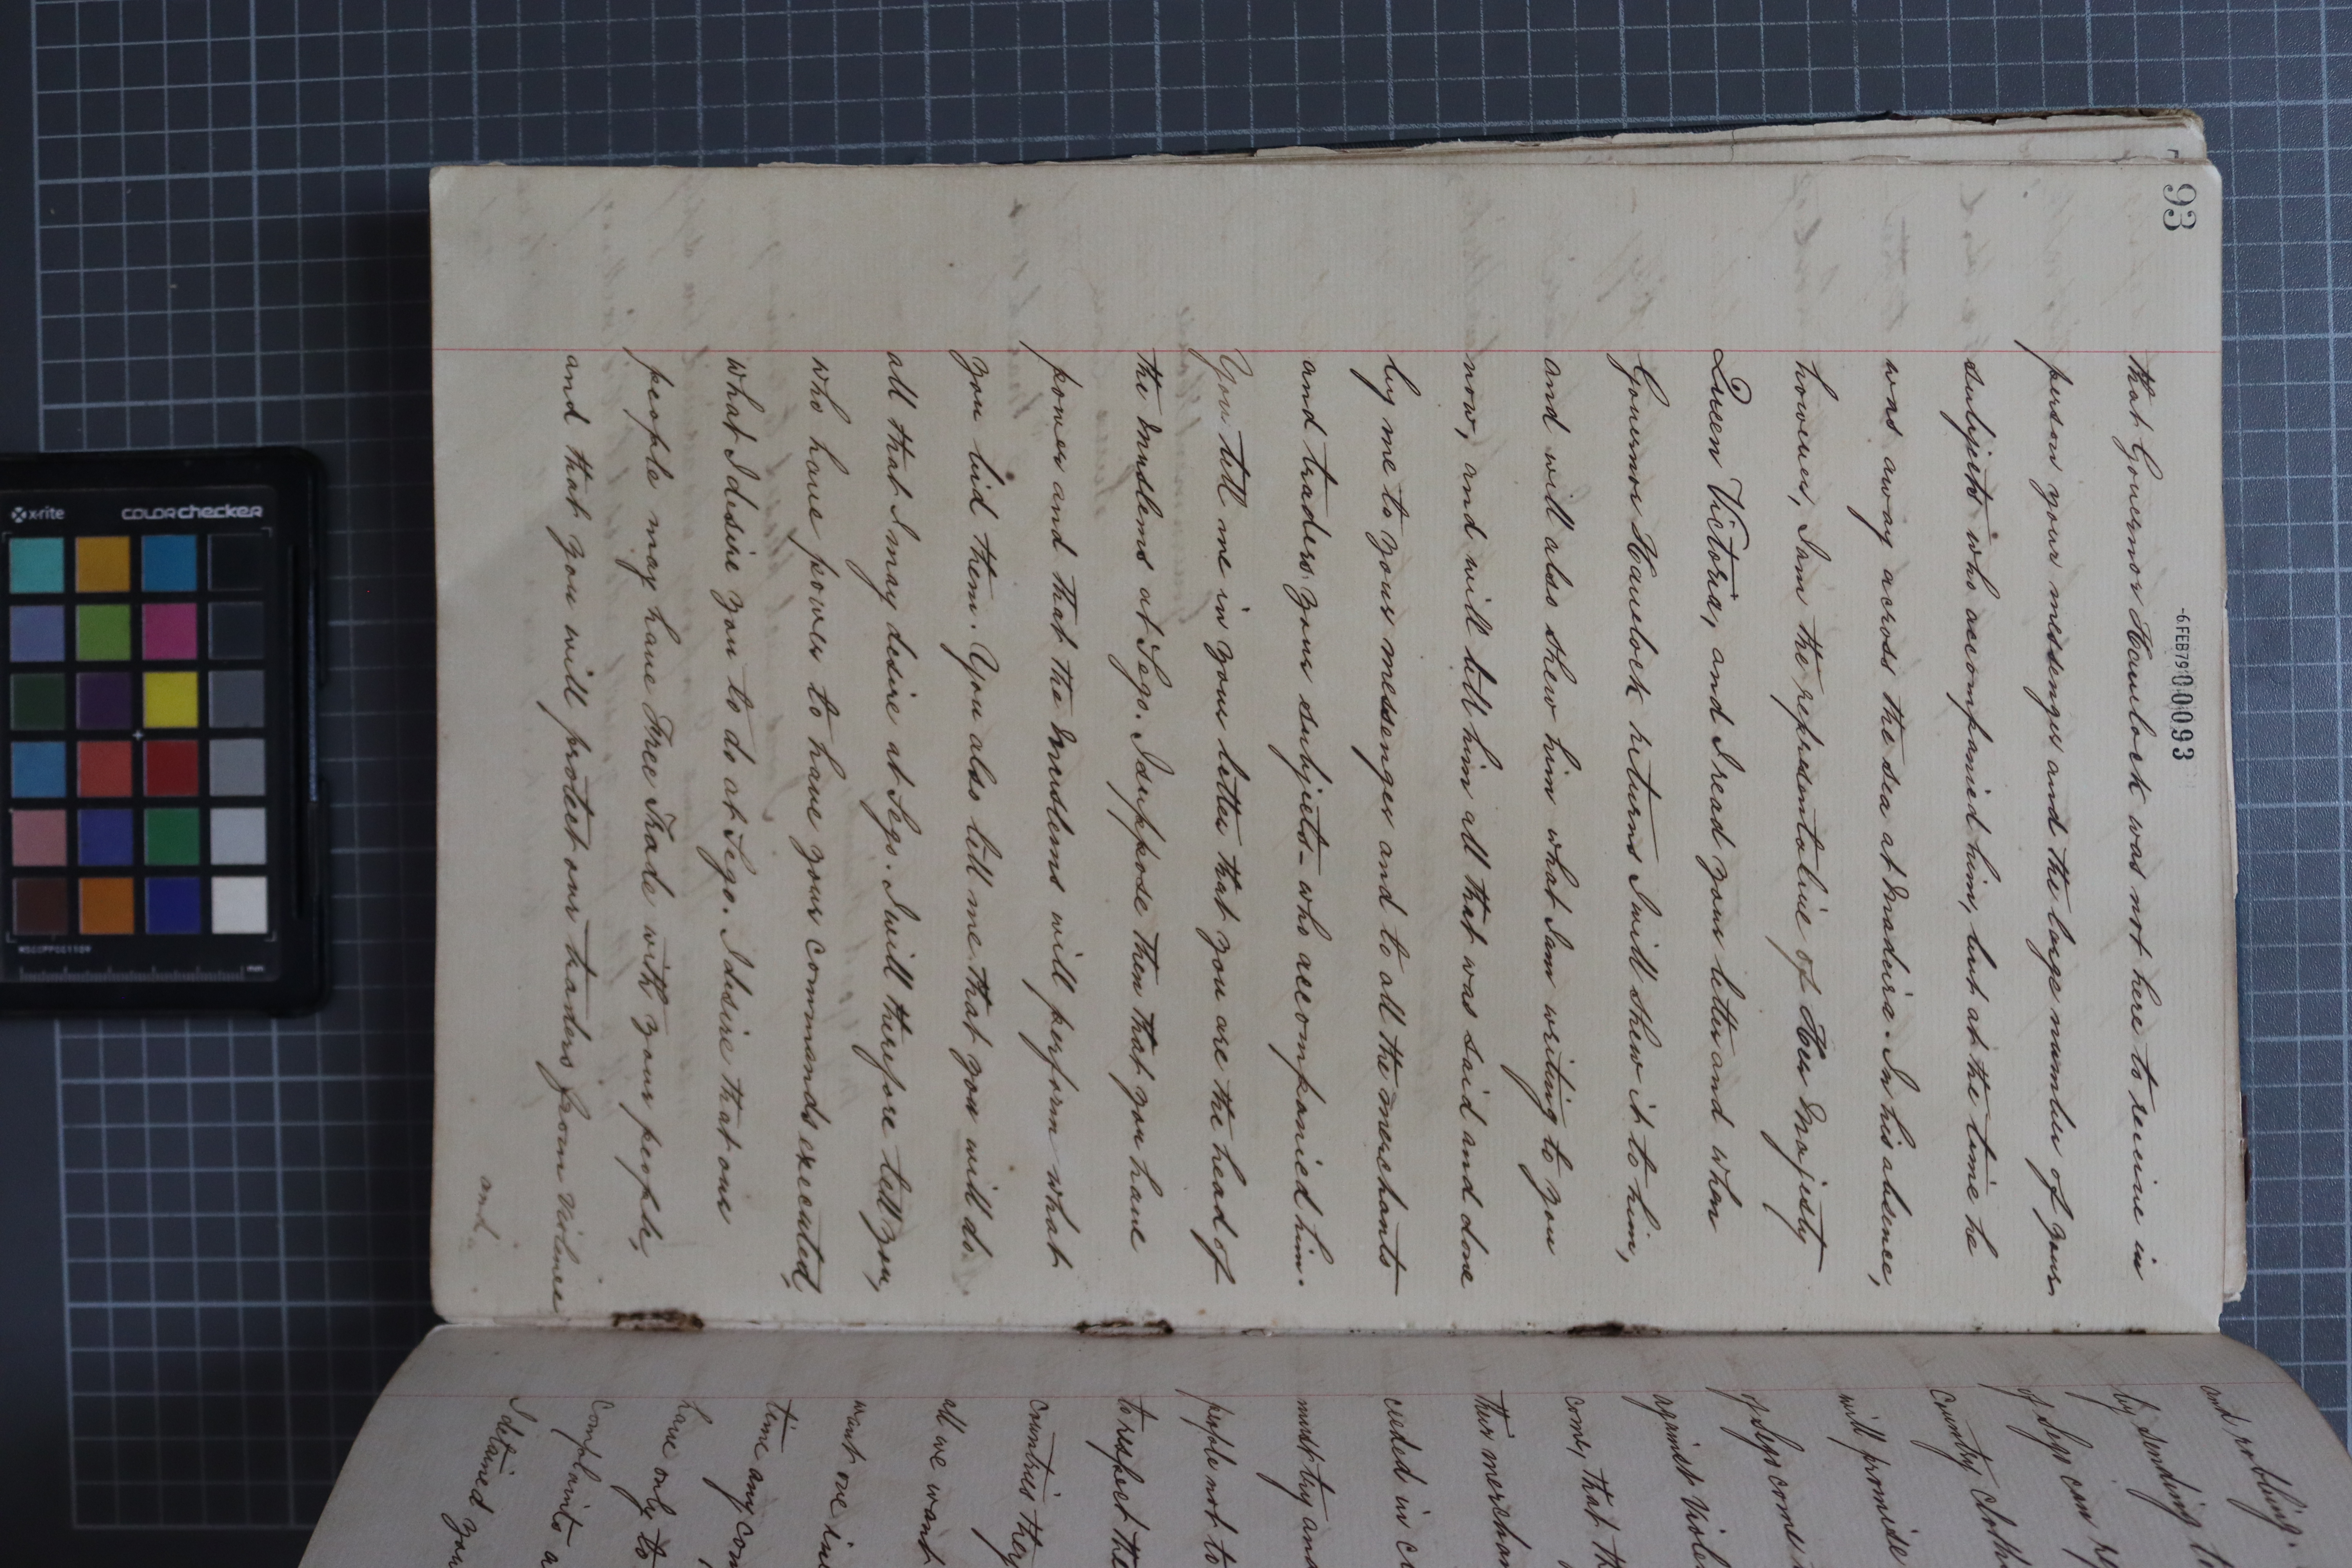 93
-6FEB79 000093
that Governor Havelock was not here to receive in
person your messenger and the large number of your
subjects who accompanied him, but at the time he
was away across the sea at Madeira. In his absence,
however, I am the representative of Her Majesty
Queen Victoria, and I read your letter and when
Governor Havelock returns I will shew it to him,
and will also shew him what I am writing to you
now, and will tell him all that was said and done
by me to your messenger and to all the merchants
and traders your subjects - who accompanied him.
You tell me in your letter that you are the head of
the Muslems at Sego. I suppose then that you have
power and that the Muslems will perform what
you bid them. You also tell me that you will do
all that I may desire at Sego. I will therefore tell you,
who have power to have your commands executed,
what I desire you to do at Sego. I desire that our
people may have Free Trade with your people,
and that you will protect our traders from violence
and
and robbing.
by sending
of Sego can
country cloth
will promise
of Sego come
against viole
come, that th
their merchan
ceeded in
must try and
people not to
to respect the
countries they
all we want
want our
time any con
have only to
complaints a
I detained you
x-rite
colorchecker